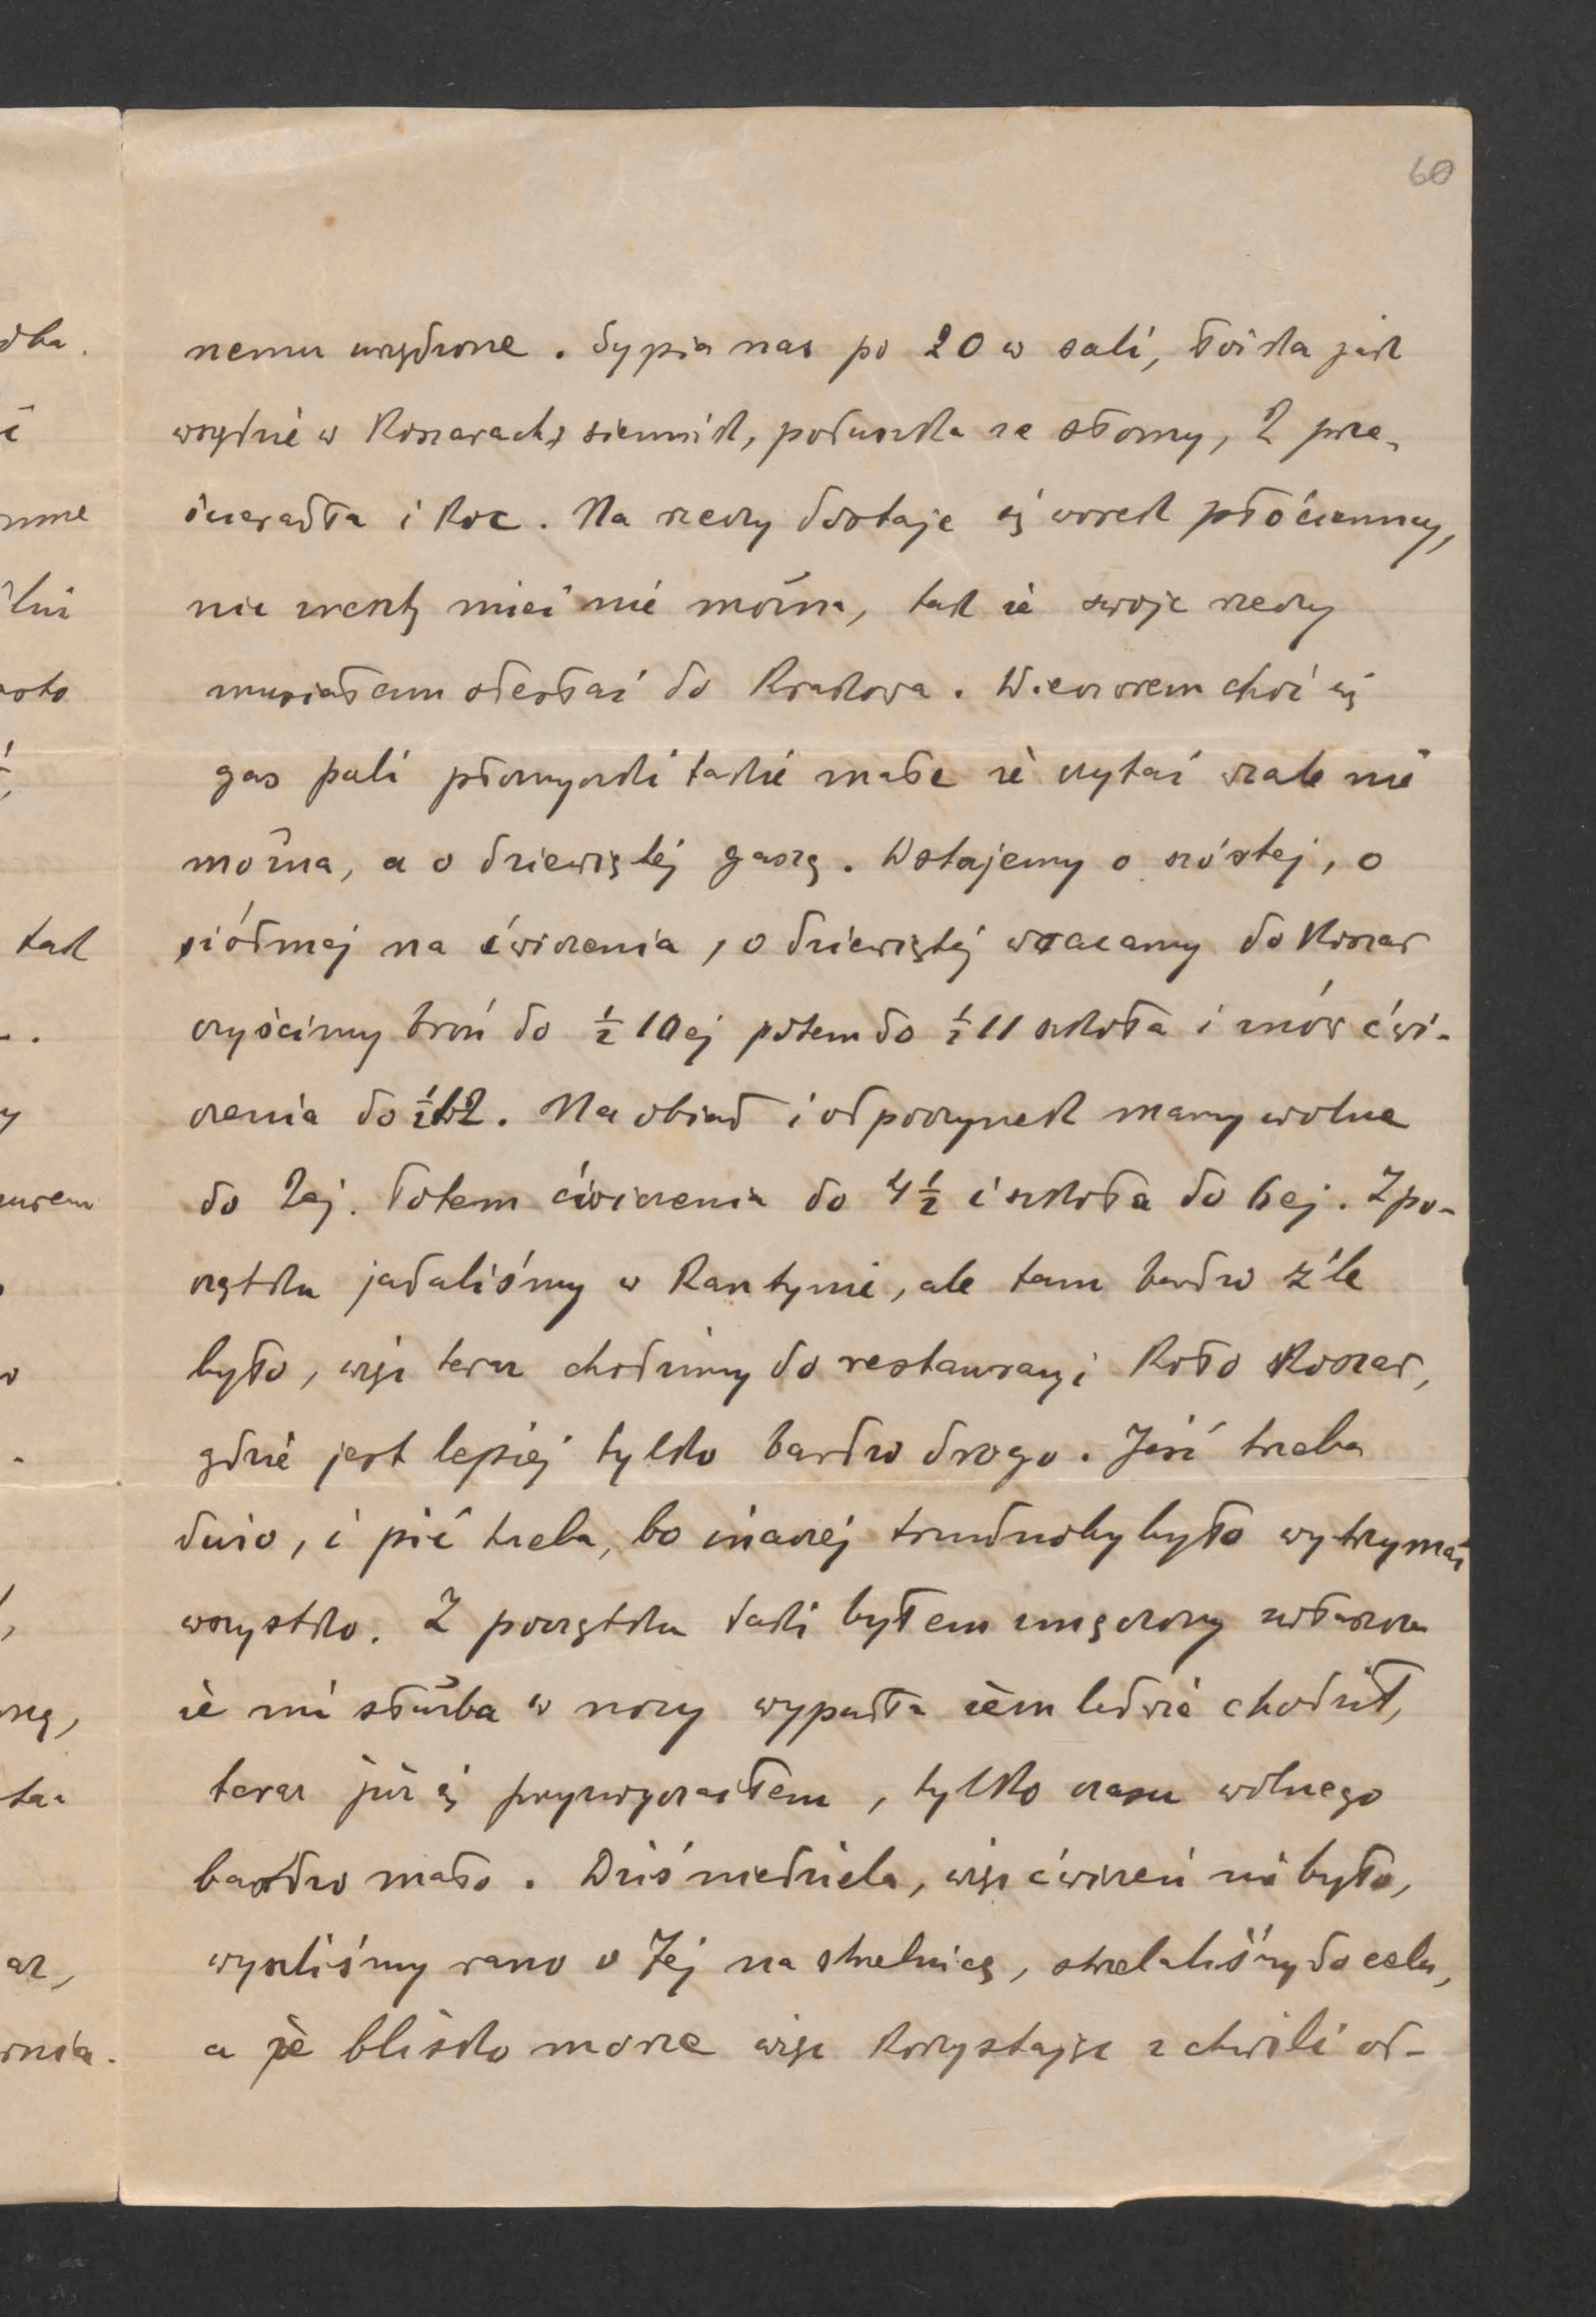 60
nemu urządzone. Sypia nas po 20 w sali, łóżka jak
wszędzie w koszarach, siennik, poduszka ze słomy, 2 prze-
ścieradła i koc. Na rzeczy dostaje się worek płócienny,
nic zresztą mieć nie można, tak że swoje rzeczy
musiałem odesłać do Krakowa. Wieczorem choć się
gas pali płomyczki takie małe że czytać wcale nie
można, a o dziewiątej gaszą. Wstajemy o szóstej, o
siódmej na ćwiczenia, o dziewiątej wracamy do koszar
czyścimy broń do ½ 10ej potem do ½ 11 szkoła i znów ćwi-
czenia do ½ 12. Na obiad i odpoczynek mamy wolne
do 2ej. Potem ćwiczenia do 4½ i szkoła do 6ej. Z po-
czątku jadaliśmy w kantynie, ale tam bardzo źle
było, więc teraz chodzimy do restauracyi koło koszar,
gdzie jest lepiej tylko bardzo drogo. Jeść trzeba
dużo, i pić trzeba, bo inaczej trudnoby było wytrzymać
wszystko. Z początku taki byłem zmęczony zwłaszcza
że mi służba w nocy wypadła żem ledwie chodził,
teraz już się przyzwyczaiłem, tylko czasu wolnego
bardzo mało. Dziś niedziela, więc ćwiczeń nie było,
wyszliśmy rano o 7ej na strzelnicę, strzelaliśmy do celu,
a że blisko morze więc korzystając z chwili od-
dka.
nme
tak
y
urem
ną,
ta
az,
rnia.